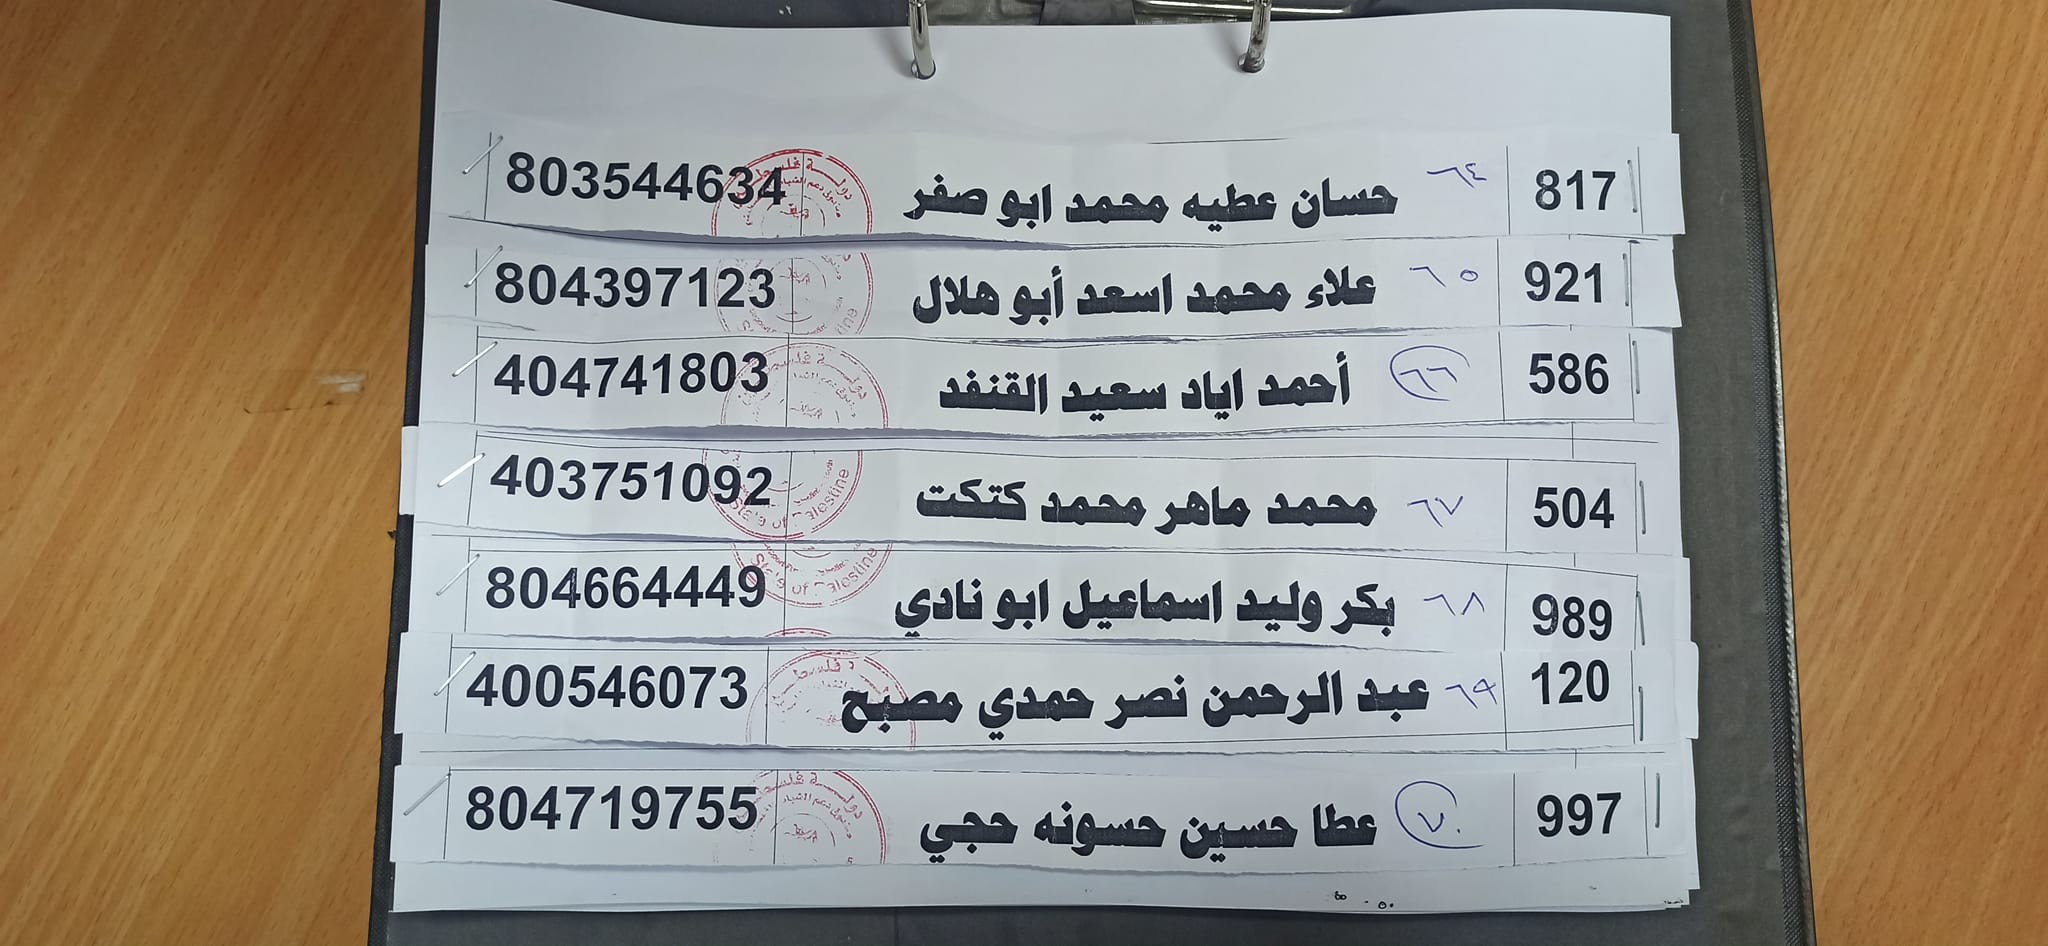 817 ٦٤ حسان عطيه محمد ابو صفر 803544634
921 ٦٥ علاء محمد اسعد أبو هلال 804397123
586 ٦٦ أحمد اياد سعيد القنفد 404741803
504 ٦٧ محمد ماهر محمد كتكت 403751092
989 ٦٨ بكر وليد اسماعيل ابو نادي 804664449
120 ٦٩ عبد الرحمن نصر حمدي مصبح 400546073
997 ٧٠ عطا حسين حسونه حجي 804719755